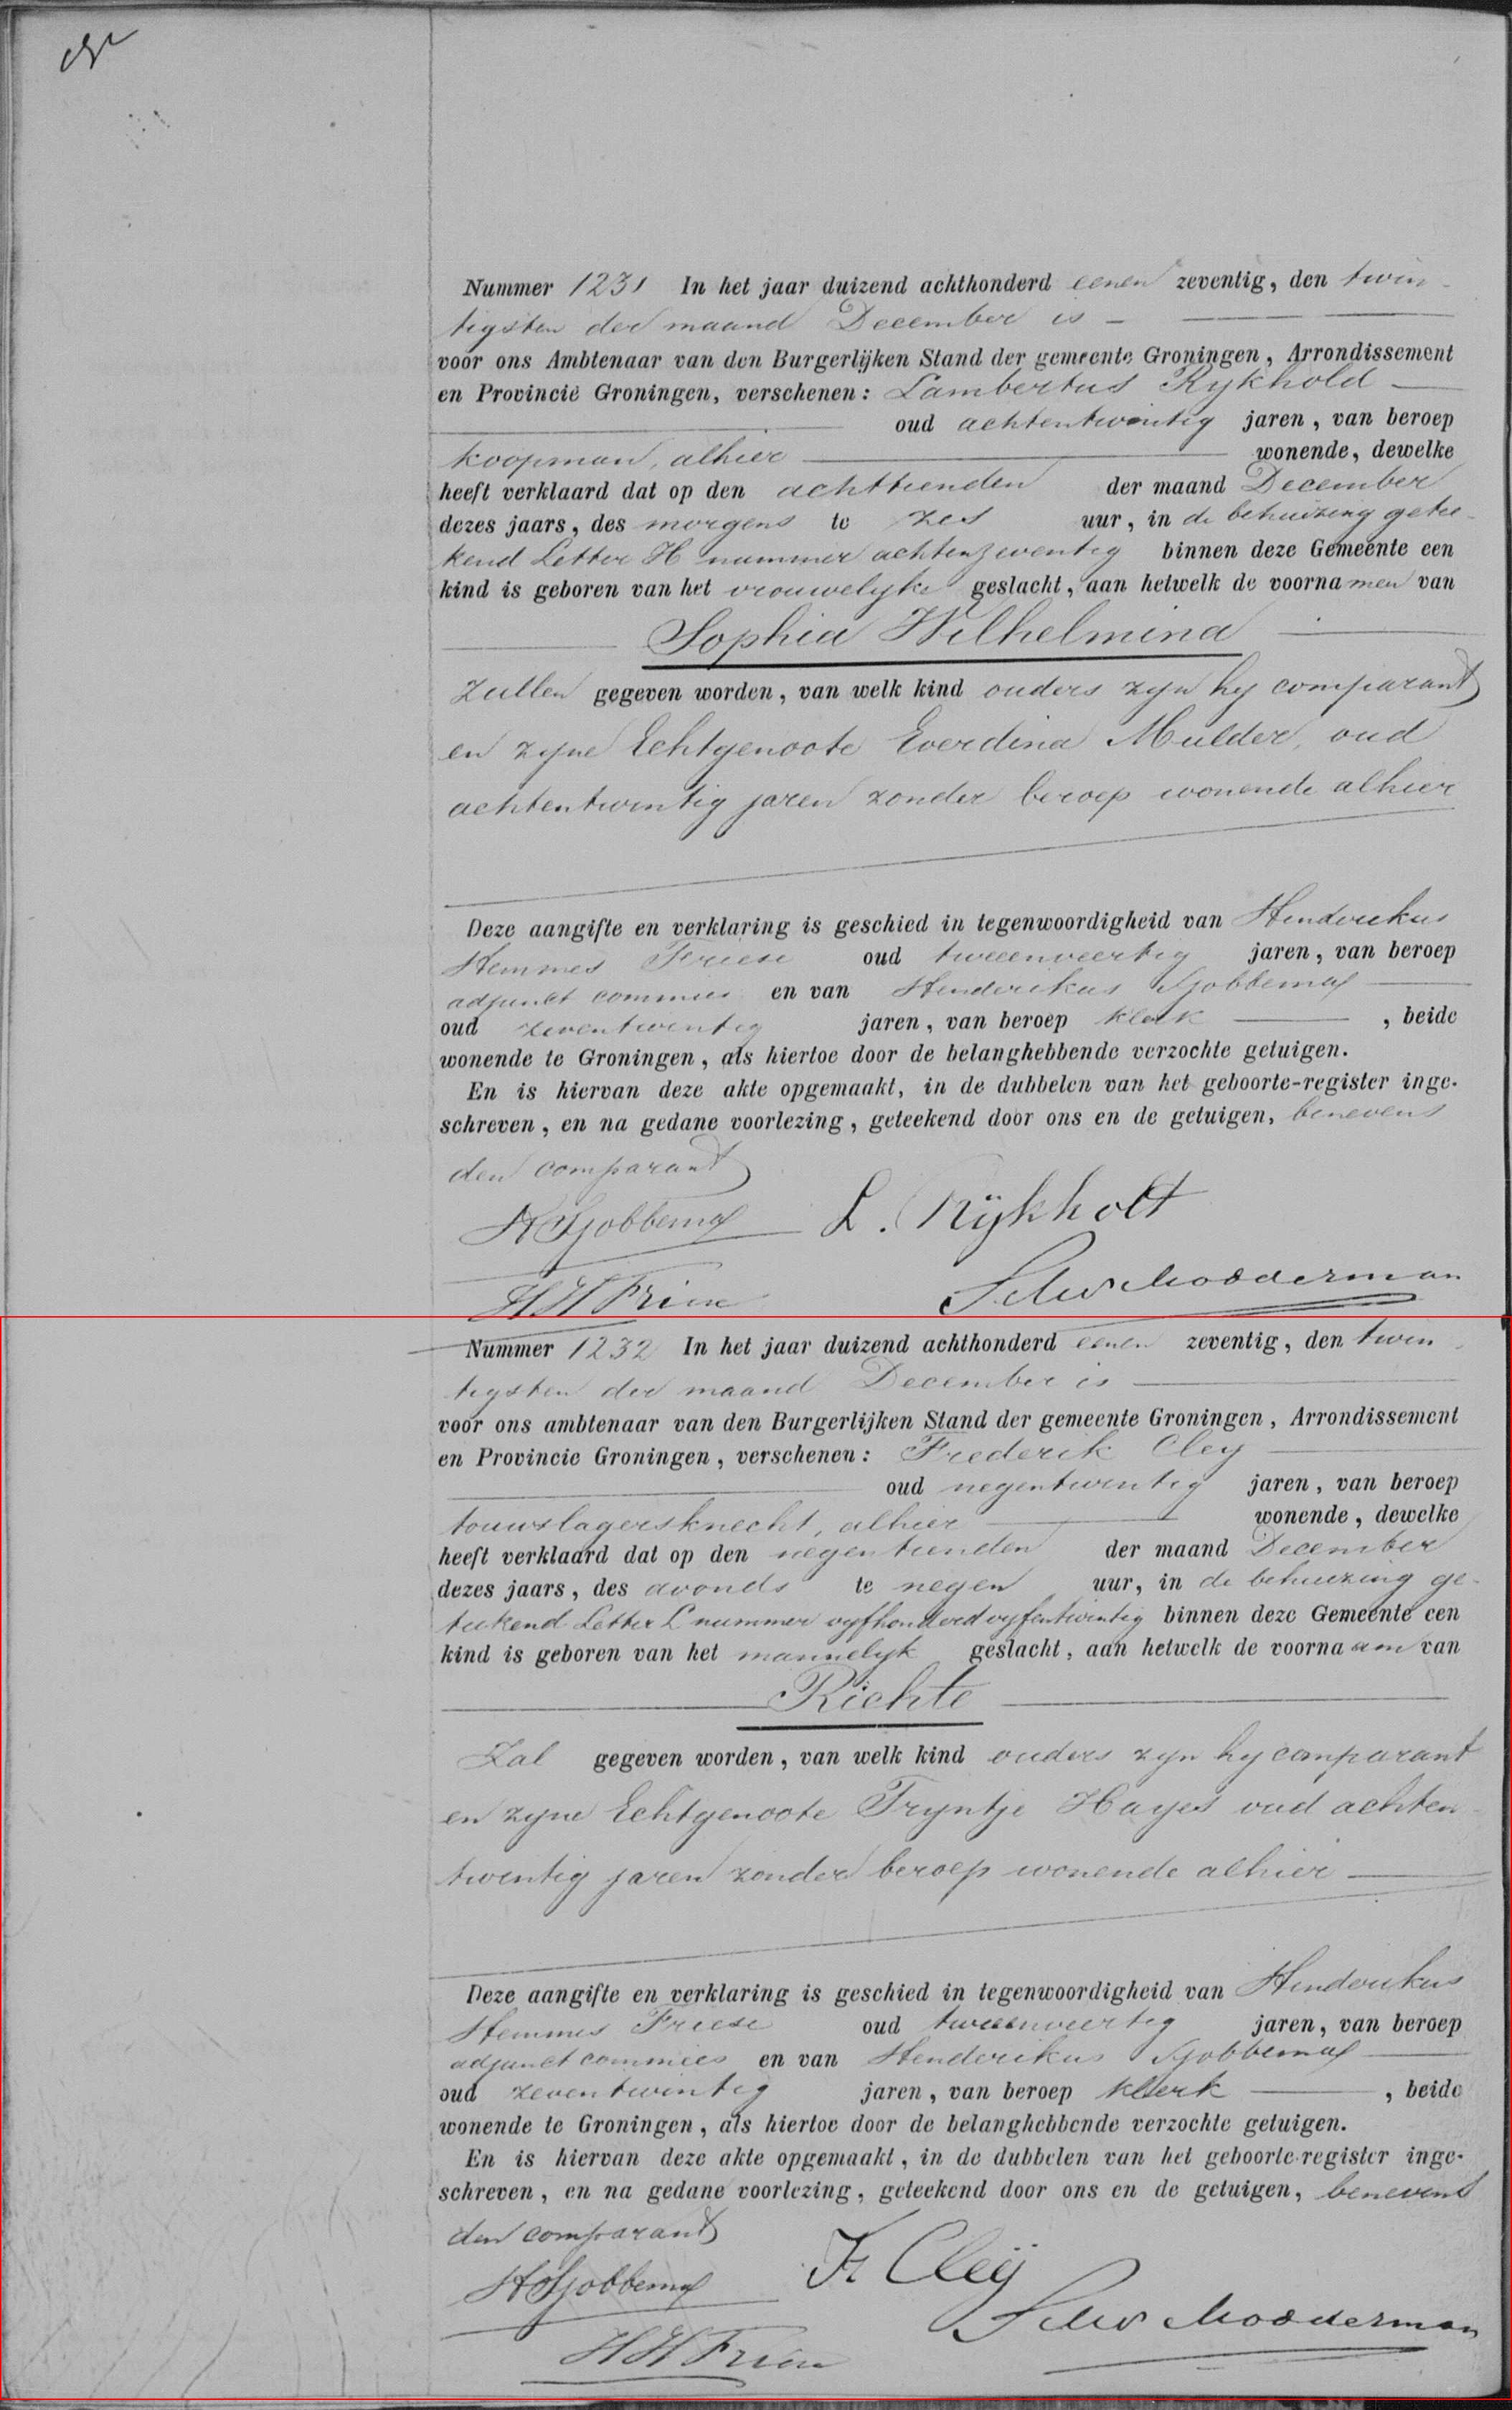 Nummer 1231 In het jaar duizend achthonderd eenen zeventig, den twin-
tigsten der maand December is
voor ons Ambtenaar van den Burgerlijken Stand der gemeente Groningen, Arrondissement
en Provincie Groningen, verschenen: Lambertus Rykhold
oud achtentwintig jaren, van beroep
koopman, alhier wonende, dewelke
heeft verklaard dat op den achttienden der maand December
dezes jaars, des morgens te zes uur, in de behuizing getee-
kend Letter H nummer achtenzeventig binnen deze Gemeente een
kind is geboren van het vrouwelyke geslacht, aan hetwelk de voornamen van
Sophia Wilhelmina
zullen gegeven worden, van welk kind ouders zyn hy comparant
en zyne Echtgenoote Everdina Mulder, oud
achtentwintig jaren zonder beroep wonende alhier
Deze aangifte en verklaring is geschied in tegenwoordigheid van Henderikus
Hemmes Friese oud tweeenveertig jaren, van beroep
adjunct commies en van Henderikus Sjobbema
oud zeventwintig jaren, van beroep klerk, beide
wonende te Groningen, als hiertoe door de belanghebbende verzochte getuigen.
En is hiervan deze akte opgemaakt, in de dubbelen van het geboorte-register inge-
schreven, en na gedane voorlezing, geteekend door ons en de getuigen, benevens
den comparant
H Sjobbema L. Rijkholt
H H Friese Modderman
Nummer 1232 In het jaar duizend achthonderd eenen zeventig, den twin-
tigsten der maand December is
voor ons ambtenaar van den Burgerlijken Stand der gemeente Groningen, Arrondissement
en Provincie Groningen, verschenen: Frederik Cley
oud negentwintig jaren, van beroep
touwslagersknecht, alhier wonende, dewelke
heeft verklaard dat op den negentienden der maand December
dezes jaars, des avonds te negen uur, in de behuizing ge-
teekend Letter L nummer vyfhonderd vyfentwintig binnen deze Gemeente een
kind is geboren van het mannelyk geslacht, aan hetwelk de voornaam van
Richte
Zal gegeven worden, van welk kind ouders zyn hy comparant
en zyne Echtgenoote Tryntje Hayes oud achten-
twintig jaren zonder beroep wonende alhier
Deze aangifte en verklaring is geschied in tegenwoordigheid van Henderikus
Hemmes Friese oud tweeenveertig jaren, van beroep
adjunct commies en van Henderikus Sjobbema
oud zeventwintig jaren, van beroep klerk, beide
wonende te Groningen, als hiertoe door de belanghebbende verzochte getuigen.
En is hiervan deze akte opgemaakt, in de dubbelen van het geboorte-register inge-
schreven, en na gedane voorlezing, geteekend door ons en de getuigen, benevens
den comparant
H Sjobbema Fr Cleij
H H Friese Modderman